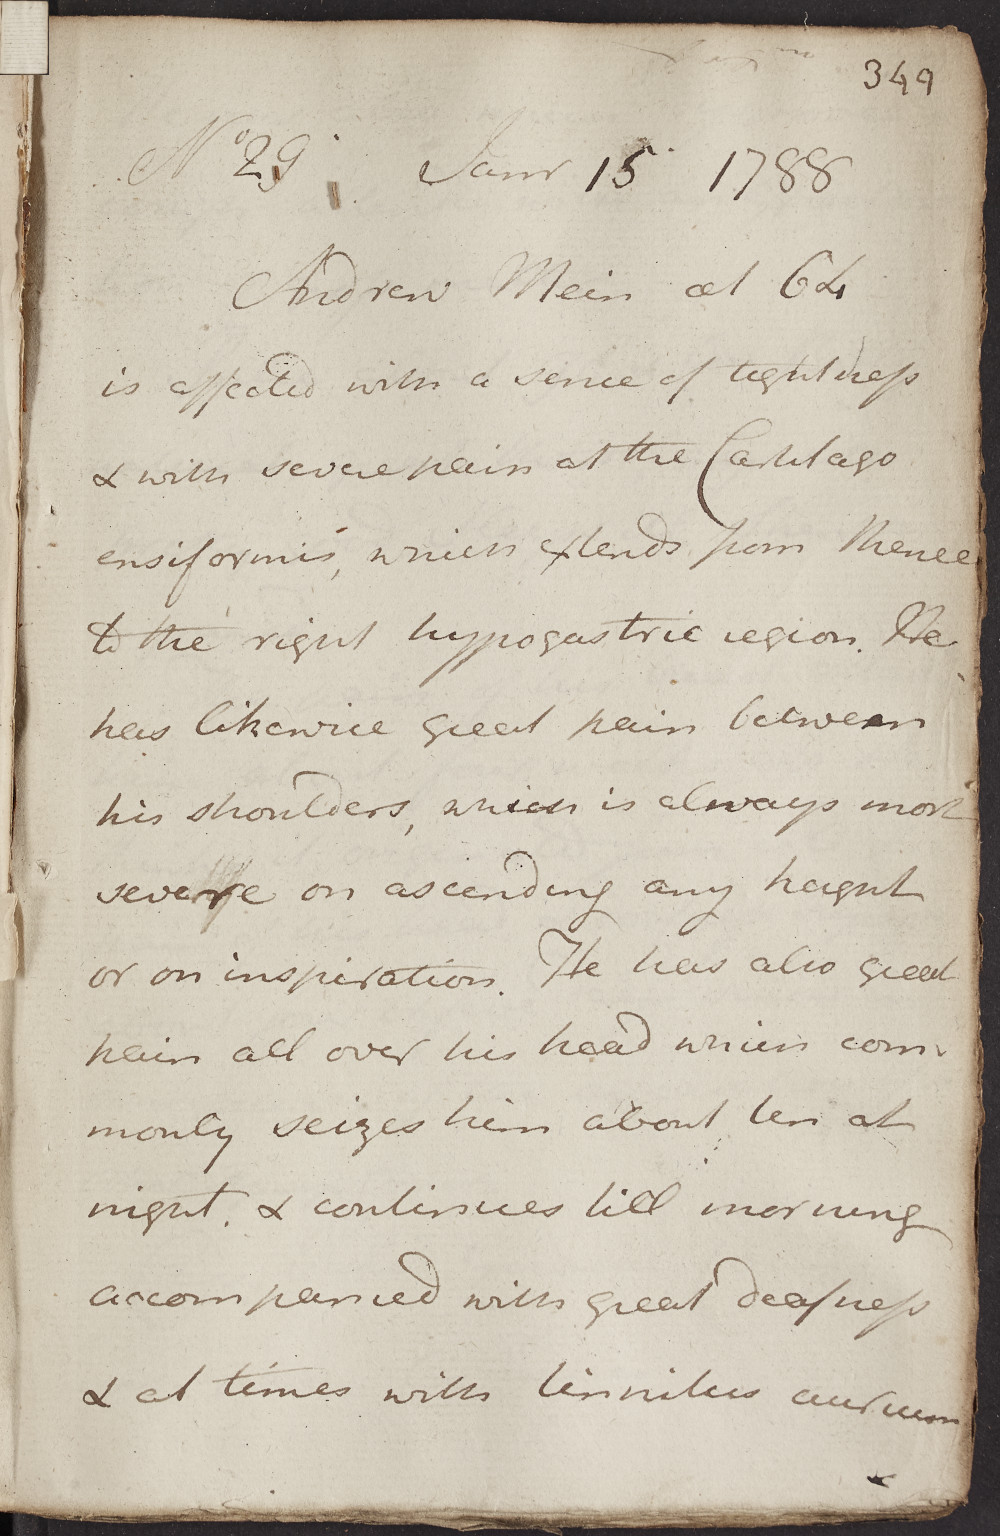 349
No 29 Janr 15 1788
Andrew Mein æt 64
is affected with a sense of tightness
& with severe pain at the Cartilago
ensiformis, which extends from thence
to the right hypogastric region. He
has likewise great pain between
his shoulders, which is always more
severe on ascending any height
or on inspiration. He has also great
pain all over his head which com-
monly seizes him about ten at
night. & continues till morning
accompanied with great deafness
& at times with tinnitus aurium